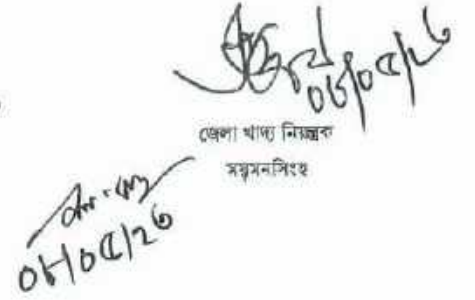 ০৮/০৫/২৬
জেলা খাদ্য নিয়ন্ত্রক
ময়মনসিংহ
০৮/০৫/২৬